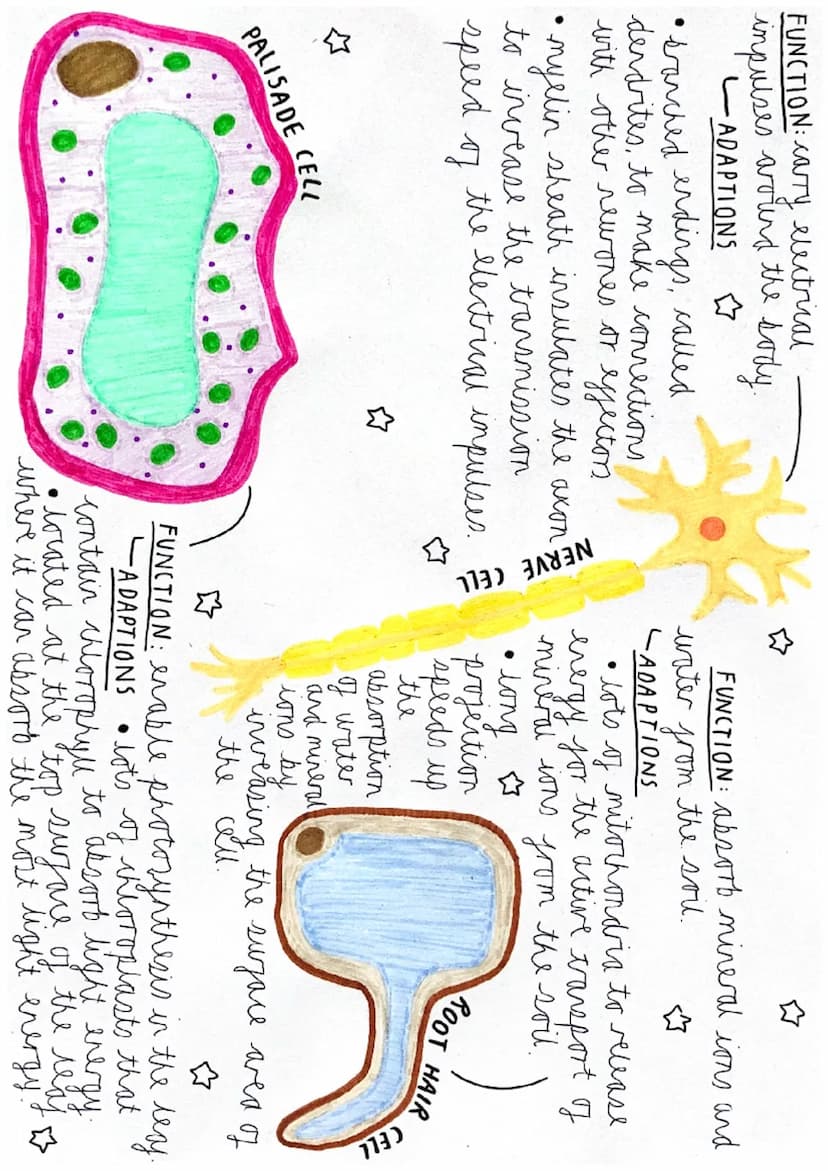 FUNCTION: carry electrical
impulses around the body.
ADAPTIONS
• branched endings, called
dendrites, to make connections
with other neurones or effectors
• myelin sheath insulates the axon
to increase the transmission
speed of the electrical impulses.
NERVE CELL
FUNCTION: absorb mineral ions and
water from the soil.
ADAPTIONS
• lots of mitochondria to release
energy for the active transport of
mineral ions from the soil.
• long
projection
speeds up
the
absorption
of water
and mineral
ions by
increasing the surface area of
the cell.
ROOT HAIR CELL
PALISADE CELL
FUNCTION: enable photosynthesis in the leaf.
ADAPTIONS
• lots of chloroplasts that
contain chlorophyll to absorb light energy.
• located at the top surface of the leaf
where it can absorb the most light energy.